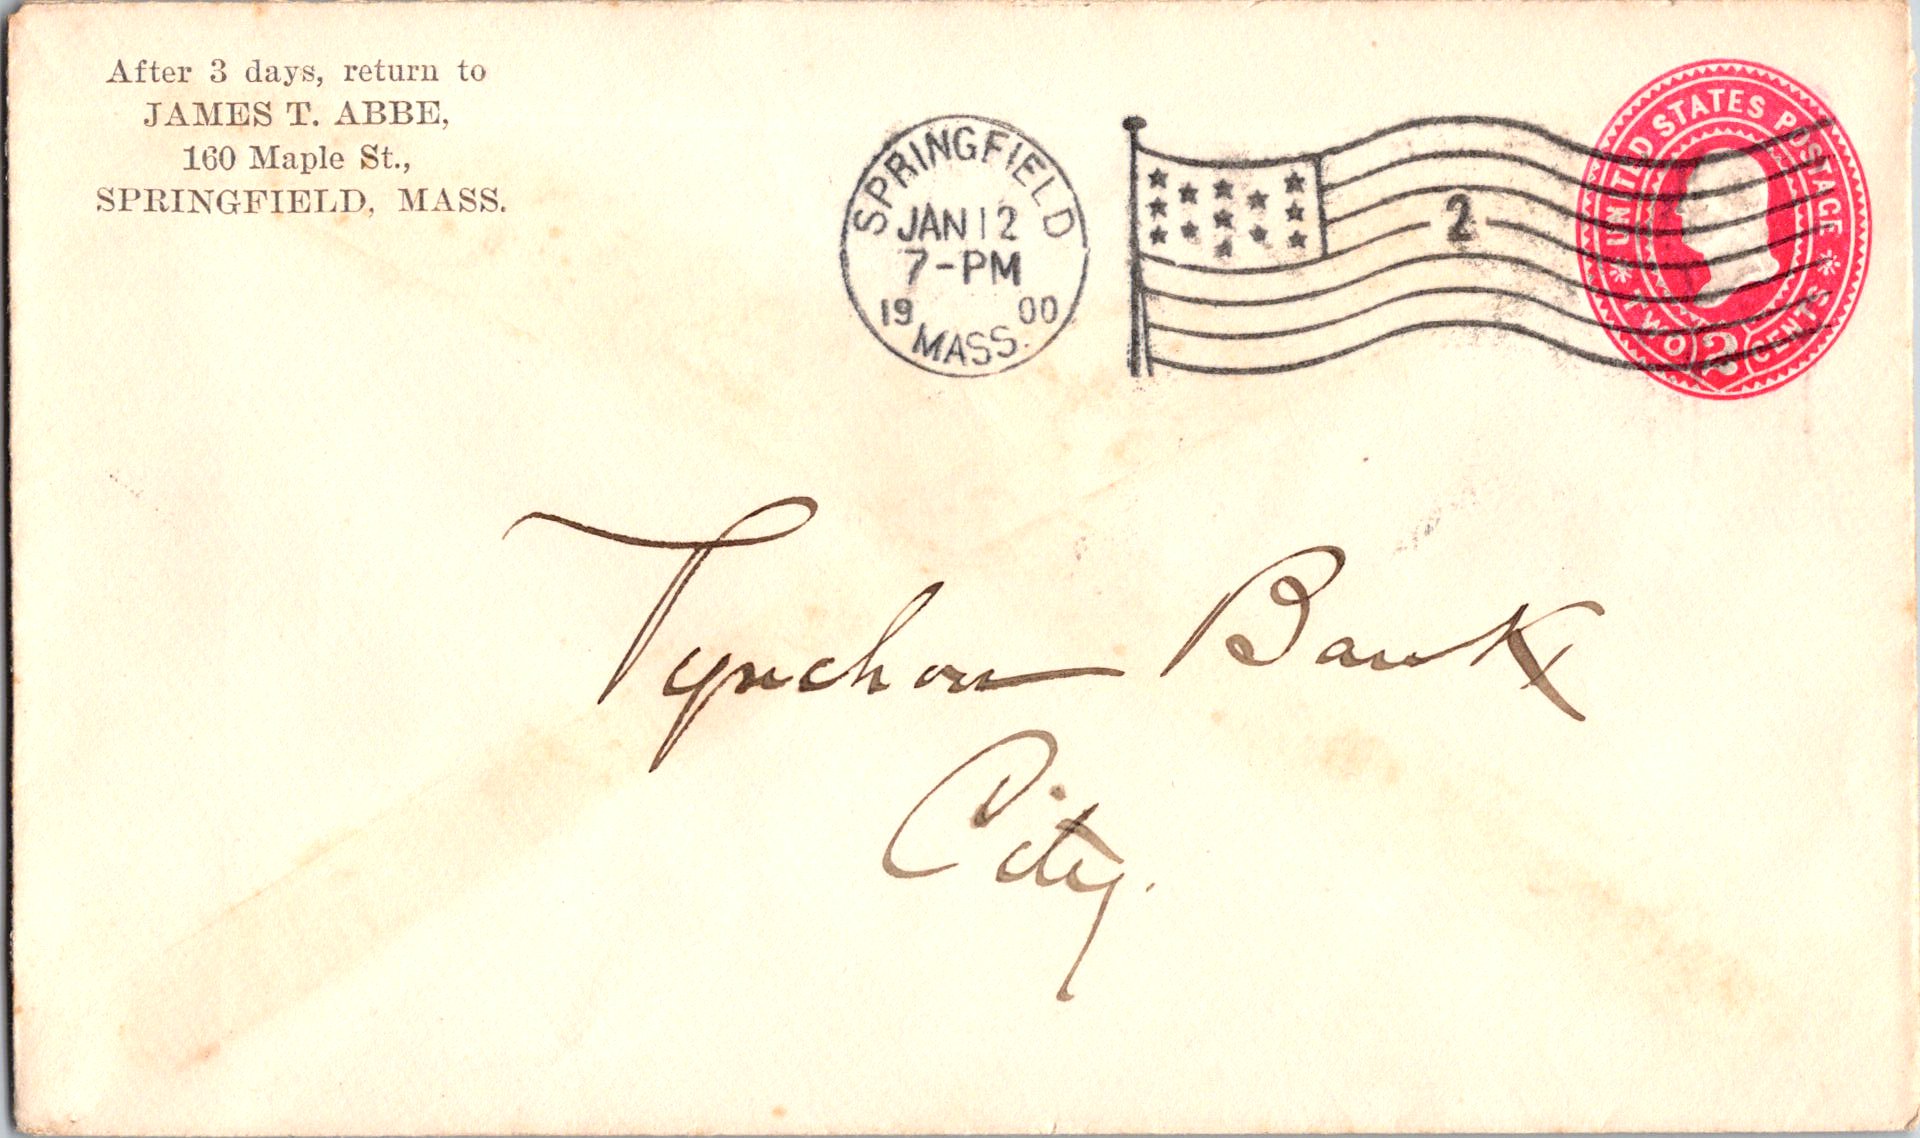 After 3 days, return to
JAMES T. ABBE,
160 Maple St.,
SPRINGFIELD, MASS.
SPRINGFIELD
JAN 12
7-PM
19 00
MASS.
2
UNITED STATES POSTAGE
TWO 2 CENTS
Pynchon Bank
City.